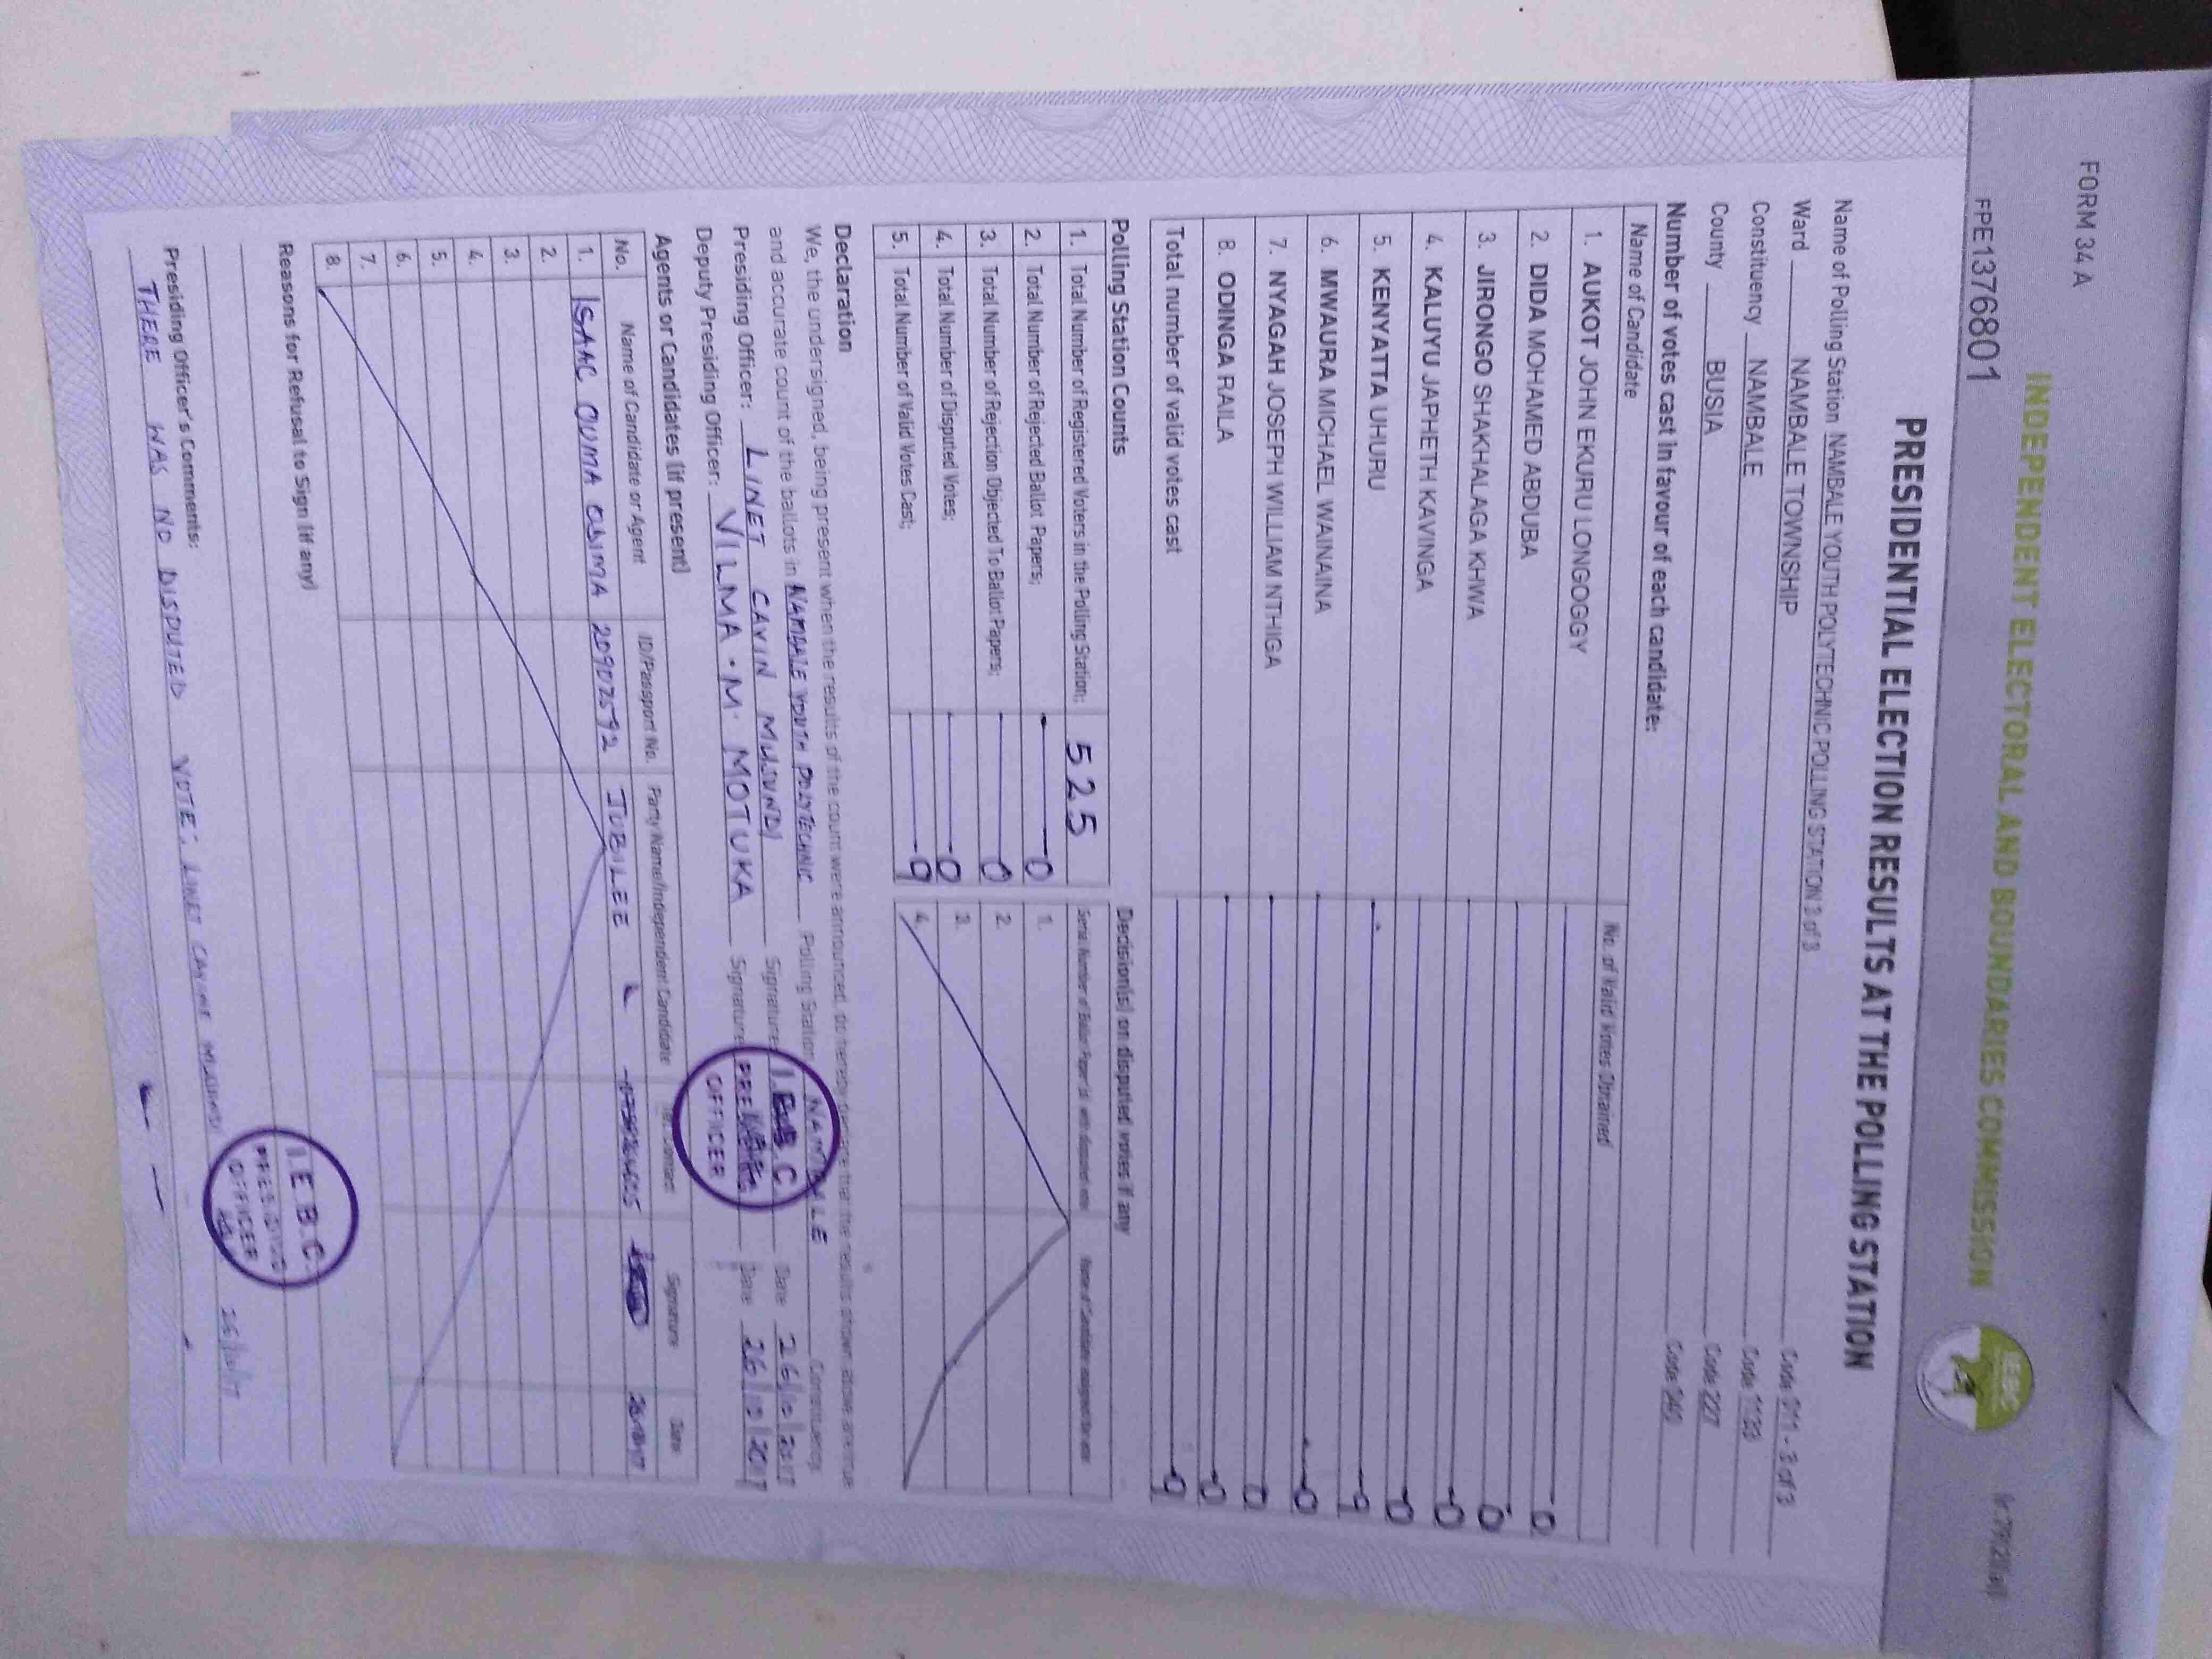 FORM 34 A
INDEPENDENT ELECTORAL AND BOUNDARIES COMMISSION
FPE1376801
IEBC
PRESIDENTIAL ELECTION RESULTS AT THE POLLING STATION
Name of Polling Station NAMBALE YOUTH POLYTECHNIC POLLING STATION 3 of 3 Code 011 - 3 of 3
Ward NAMBALE TOWNSHIP Code 1133
Constituency NAMBALE Code 227
County BUSIA Code 040
Number of votes cast in favour of each candidate:
Name of Candidate No. of Valid Votes Obtained
1. AUKOT JOHN EKURU LONGOGGY 0
2. DIDA MOHAMED ABDUBA 0
3. JIRONGO SHAKHALAGA KHWA 0
4. KALUYU JAPHETH KAVINGA 0
5. KENYATTA UHURU 0
6. MWAURA MICHAEL WAINAINA 0
7. NYAGAH JOSEPH WILLIAM NTHIGA 0
8. ODINGA RAILA 0
Total number of valid votes cast 0
Polling Station Counts Decision(s) on disputed votes if any
1. Total Number of Registered Voters in the Polling Station; 525
2. Total Number of Rejected Ballot Papers; 0 1.
3. Total Number of Rejection Objected To Ballot Papers; 0 2.
4. Total Number of Disputed Votes; 0 3.
5. Total Number of Valid Votes Cast; 0 4.
Declaration
We, the undersigned, being present when the results of the count were announced, do hereby declare that the results shown above are true
and accurate count of the ballots in NAMBALE YOUTH POLYTECHNIC Polling Station NAMBALE Constituency
Presiding Officer: LINET CAVIN MUSUNDI Signature Date 26/10/2017
Deputy Presiding Officer: VILMA . M. MOTUKA Signature Date 26/10/2017
I.E.B.C
PRESIDING
OFFICER
Agents or Candidates (if present)
No. Name of Candidate or Agent ID/Passport No. Party Name/Independent Candidate Contact Signature Date
1. ISAAC OUMA 20902592 JUBILEE
2.
3.
4.
5.
6.
7.
8.
Reasons for Refusal to Sign (if any)
I.E.B.C.
PRESIDING
OFFICER
Presiding Officer's Comments:
THERE WAS NO DISPUTED VOTE. LINET 26/10/17